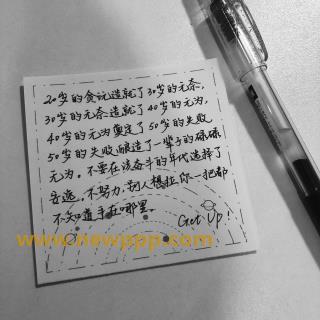 20岁的贪玩造就了30岁的无奈，
30岁的无奈造就了40岁的无为，
40岁的无为奠定了50岁的失败
50岁的失败酿造了一辈子的碌碌
无为。不要在该奋斗的年代选择了
安逸。不努力，别人想拉你一把都
不知道手在哪里。
Get Up!
www.newppp.com